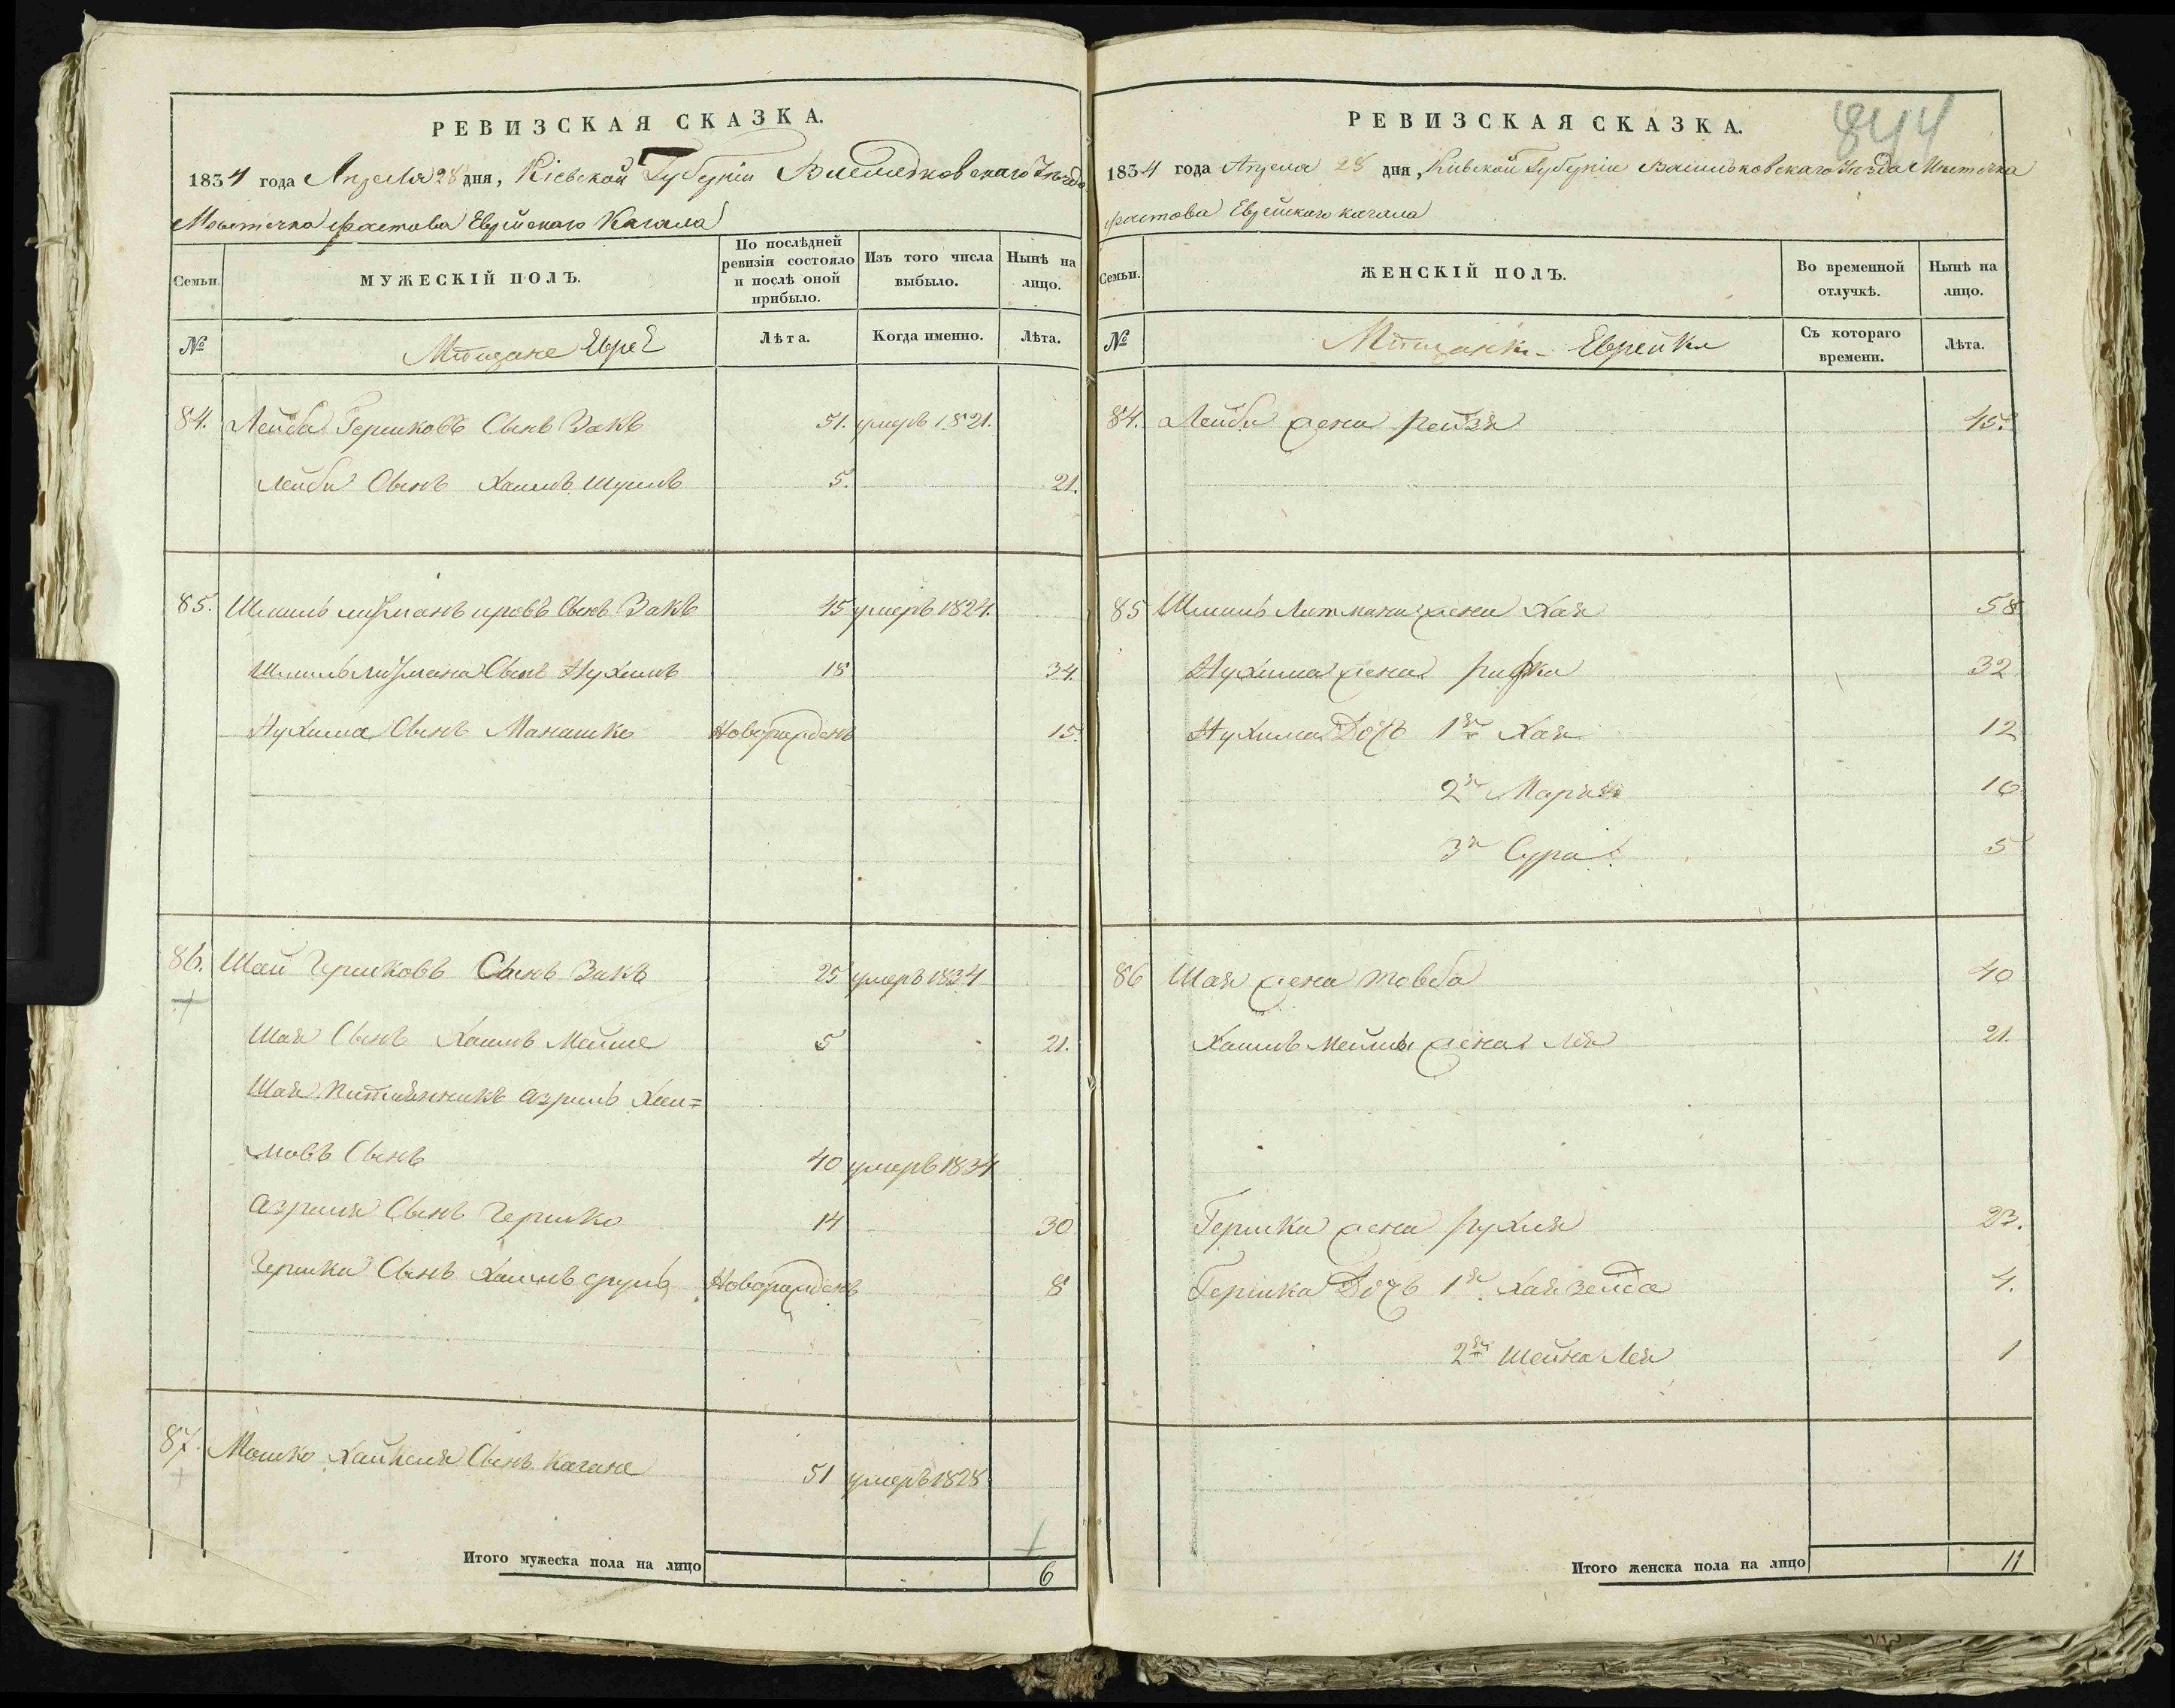 РЕВИЗСКАЯ СКАЗКА.
1834 года Апреля 28 дня, Кіевской Губерніи Васильковскаго Уезда
Местечка Фастова Еврейскаго Кагала
Семьи.
МУЖЕСКІЙ ПОЛЪ.
По послѣдней ревизіи состояло и послѣ оной прибыло.
Изъ того числа выбыло.
Нынѣ на лицо.
№
Мещане Евреи
Лѣта.
Когда именно.
Лѣта.
84. Лейба Гершковъ Сынъ Закъ 51. умеръ 1821.
Лейби Сынъ Хаимъ Шулимъ 5. 21.
85. Шмиль Литманъ Сынъ Закъ 45 умеръ 1824.
Шмиль Литмана Сынъ Нухимъ 18 34.
Нухима Сынъ Манашко Новорожденъ 15.
86. Шай Гершковъ Сынъ Закъ 25 умеръ 1834
Шая Сынъ Хаимъ Мейше 5 21.
Шая племянникъ Азриль Хаи=
мовъ Сынъ 40 умеръ 1834
Азриля Сынъ Гершко 14 30
Гершка Сынъ Хаимъ Сруль Новорожденъ 8
87. Мошко Хайкеля Сынъ Кагане 51 умеръ 1828
Итого мужеска пола на лицо 6
844
РЕВИЗСКАЯ СКАЗКА.
1834 года Апреля 28 дня, Киевской Губерніи Васильковскаго Уезда Местечка
Фастова Еврейскаго кагала
Семьи.
ЖЕНСКІЙ ПОЛЪ.
Во временной отлучкѣ.
Нынѣ на лицо.
№
Мещанки Еврейки
Съ котораго времени.
Лѣта.
84. Лейби жена Рейзя 45.
85 Шмиль Литмана жена Хая 58
Нухима жена Рифка 32
Нухима Дочь 1я Хая 12
2я Марьям 10
3я Сура 5
86 Шая жена Товба 40
Хаимъ Мейшы жена Лея 21.
Гершка жена Рухля 23.
Гершка Дочь 1я Хая Зелда 4.
2я Шейна Лея 1
Итого женска пола на лицо 11